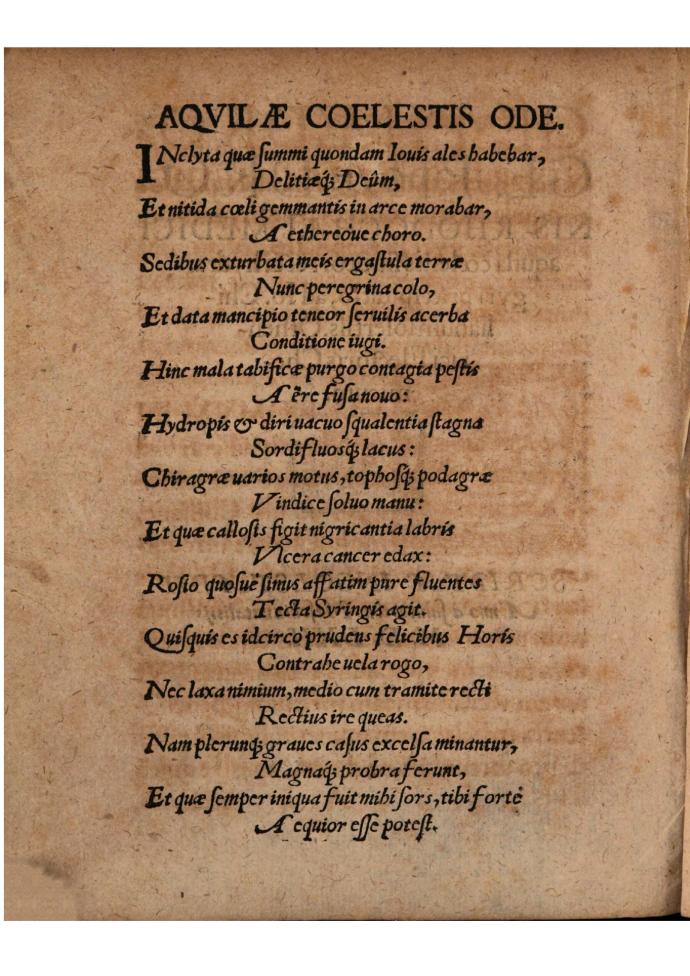 AQVILÆ COELESTIS ODE.
INclyta quæ ſummi quondam Iouis ales habebar,
Delitiæq́; Deûm,
Et nitida cœli gemmantis in arce morabar,
Aethereóue choro.
Sedibus exturbata meis ergaſtula terræ
Nunc peregrina colo,
Et data mancipio teneor ſeruilis acerba
Conditione iugi.
Hinc mala tabificæ purgo contagia peſtis
Aëre fuſa nouo:
Hydropis & diri uacuo ſqualentia ſtagna
Sordifluosq́; lacus:
Chiragræ uarios motus, tophoſq́; podagræ
Vindice ſoluo manu:
Et quæ calloſis figit nigricantia labris
Vlcera cancer edax:
Roſio quoſuè ſinus affatim pure fluentes
Tecta Syringis agit.
Quiſquis es idcircò prudens felicibus Horis
Contrahe uela rogo,
Nec laxa nimium, medio cum tramite recti
Rectius ire queas.
Nam plerunq́; graues caſus excelſa minantur,
Magnaq́; probra ferunt,
Et quæ ſemper iniqua fuit mihi ſors, tibi fortè
Aequior eſſe poteſt.